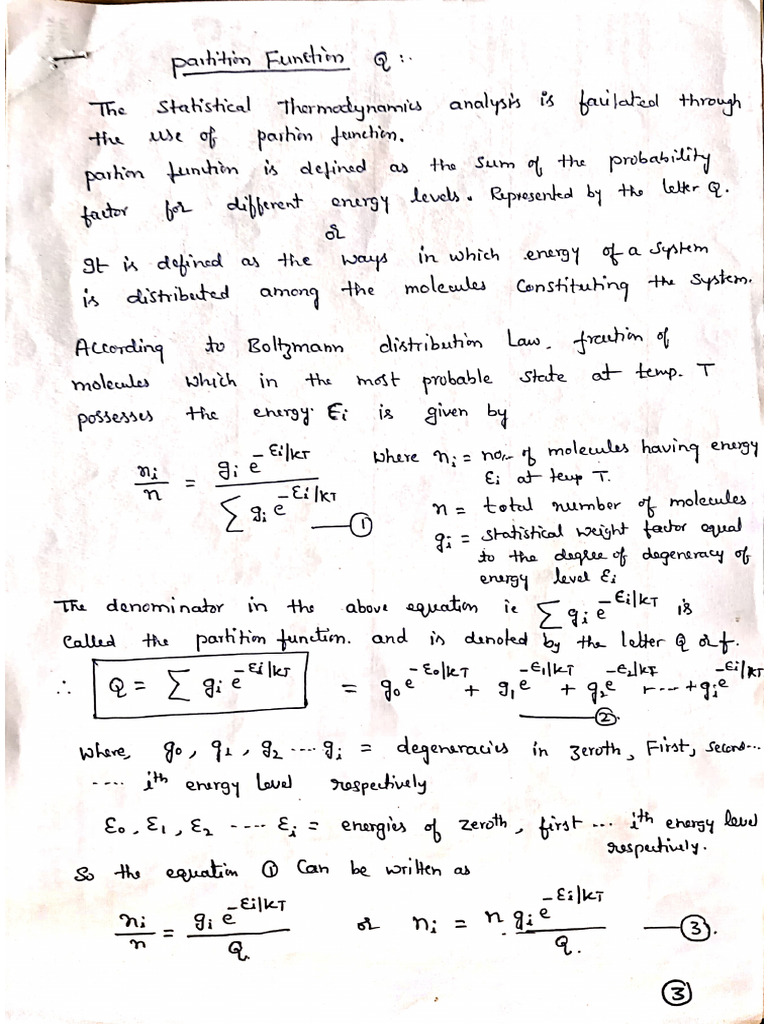 Partition Function Q :-
The Statistical Thermodynamics analysis is failated through
the use of partion function.
partion function is defined as the sum of the probability
factor for different energy levels. Represented by the letter Q.
or
It is defined as the ways in which energy of a system
is distributed among the molecules Constituting the system.
According to Boltzmann distribution Law. fraction of
molecules which in the most probable state at temp. T
possesses the energy Ei is given by
ni/n = gi e^-Ei/kT / ∑ gi e^-Ei/kT —①
where ni = no.- of molecules having energy
Ei at temp T.
n = total number of molecules
gi = statistical weight factor equal
to the degree of degeneracy of
energy level Ei
The denominator in the above equation ie ∑ gi e^-Ei/kT is
called the partition function. and is denoted by the letter Q or f.
∴ Q = ∑ gi e^-Ei/kT = g0 e^-E0/kT + g1 e^-E1/kT + g2 e^-E2/kT + --- + gi e^-Ei/kT
—②.
where, g0, g1, g2 ---- gi = degeneracies in zeroth, First, second---
---- ith energy level respectively
E0, E1, E2 ---- Ei = energies of zeroth, first --- ith energy level
respectively.
So the equation ① Can be written as
ni/n = gi e^-Ei/kT / Q. or ni = n. gi e^-Ei/kT / Q. —③.
③